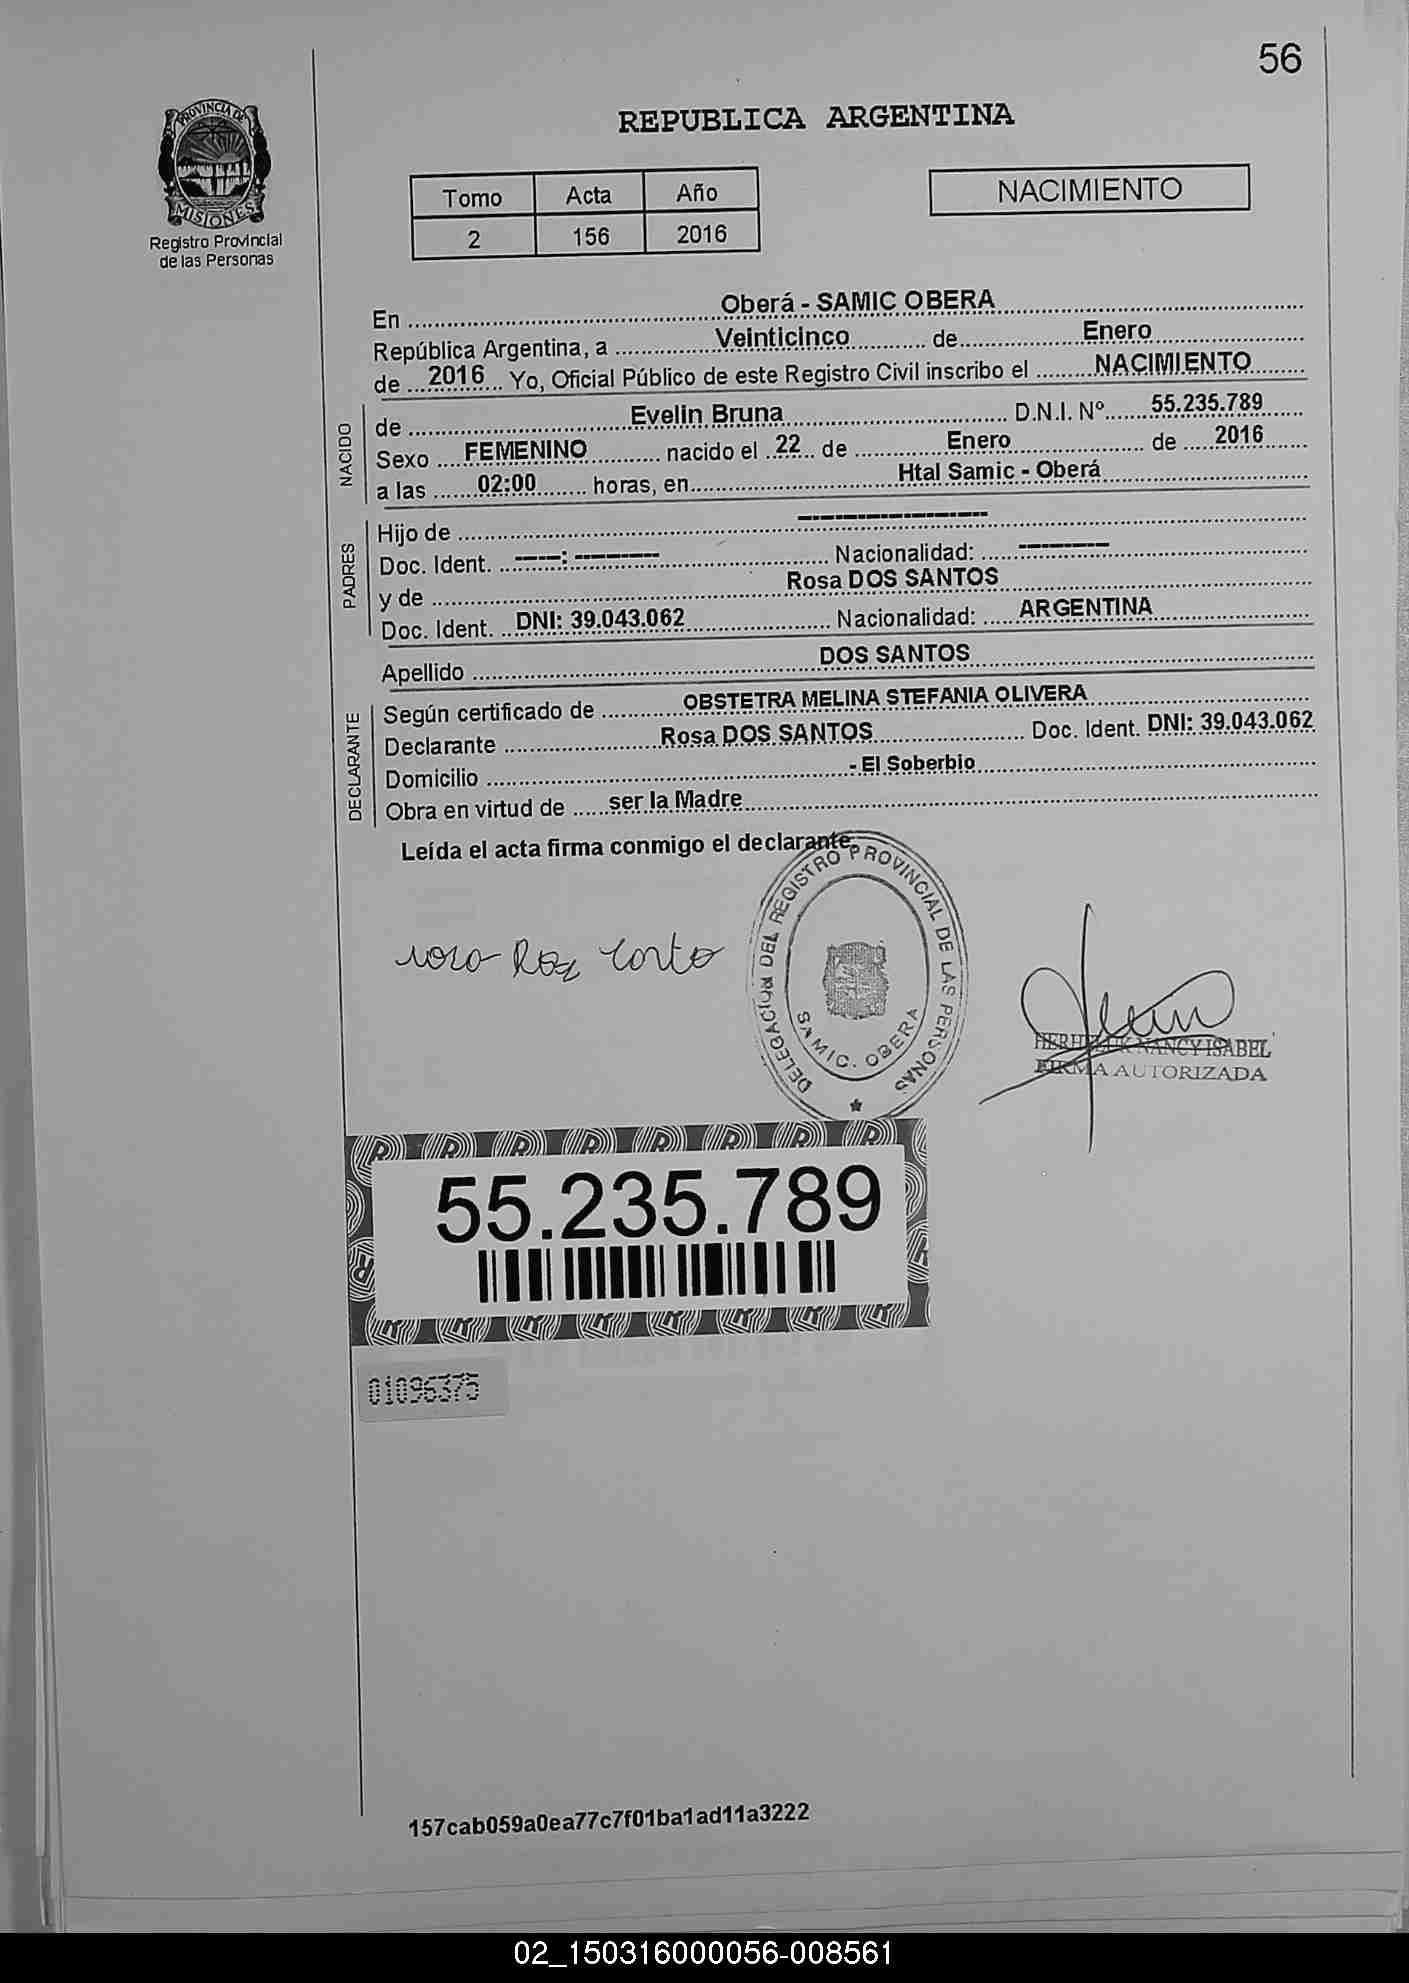 56
PROVINCIA DE
MISIONES
Registro Provincial
de las Personas
REPUBLICA ARGENTINA
Tomo Acta Año
2 156 2016
NACIMIENTO
En Oberá - SAMIC OBERA
República Argentina, a Veinticinco de Enero
de 2016 Yo, Oficial Público de este Registro Civil inscribo el NACIMIENTO
NACIDO
de Evelin Bruna D.N.I. Nº 55.235.789
Sexo FEMENINO nacido el 22 de Enero de 2016
a las 02:00 horas, en Htal Samic - Oberá
PADRES
Hijo de --------------------
Doc. Ident. -----: --------- Nacionalidad: ----------
y de Rosa DOS SANTOS
Doc. Ident. DNI: 39.043.062 Nacionalidad: ARGENTINA
Apellido DOS SANTOS
DECLARANTE
Según certificado de OBSTETRA MELINA STEFANIA OLIVERA
Declarante Rosa DOS SANTOS Doc. Ident. DNI: 39.043.062
Domicilio - El Soberbio
Obra en virtud de ser la Madre
Leída el acta firma conmigo el declarante.
DELEGACION DEL REGISTRO PROVINCIAL DE LAS PERSONAS
SAMIC. OBERA
NANCY ISABEL
FIRMA AUTORIZADA
55.235.789
01096375
157cab059a0ea77c7f01ba1ad11a3222
02_150316000056-008561